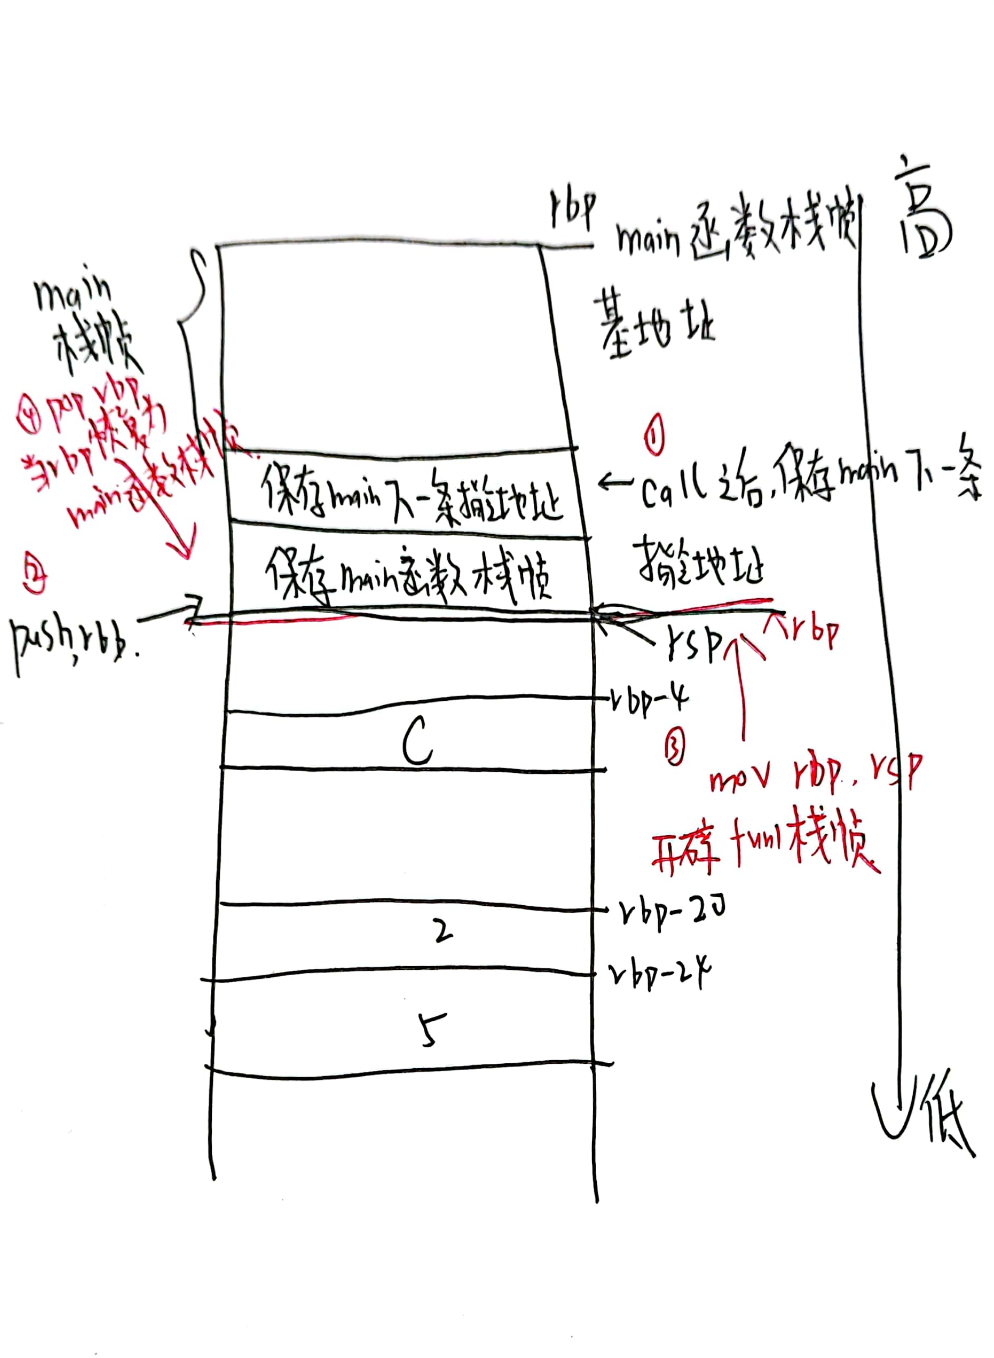 高
rbp
main函数栈帧
基地址
main
栈帧
④pop rbp,
恢复为
当rbp
main函数栈帧.
①
保存main下一条指令地址
←call之后,保存main下一条
指令地址
②
保存main函数栈帧
push,rbp.
rsp
rbp
rbp-4
C
③
mov rbp, rsp
开辟fun1栈帧
rbp-20
2
rbp-24
5
低